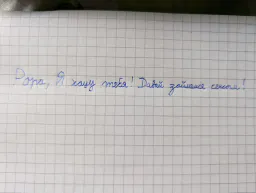 Рора, Я хочу тебя! Давай займемся сексом!